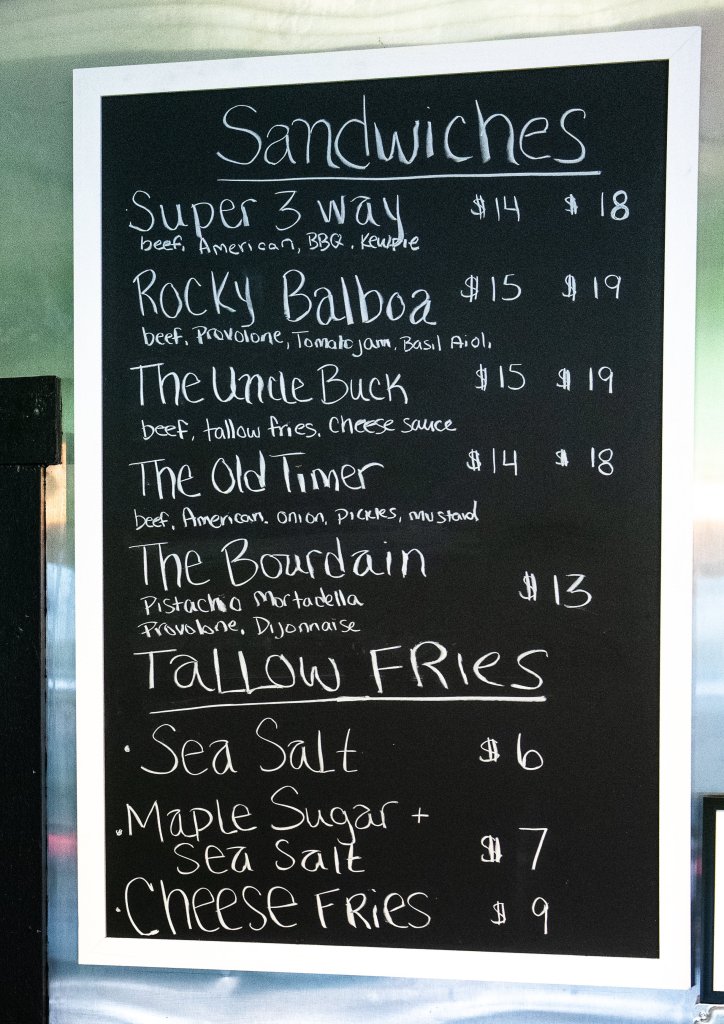 Sandwiches
Super 3 way $14 $18
beef, American, BBQ, Kewpie
Rocky Balboa $15 $19
beef, Provolone, Tomato jam, Basil Aioli
The Uncle Buck $15 $19
beef, tallow fries, cheese sauce
The Old Timer $14 $18
beef, American, onion, pickles, mustard
The Bourdain $13
Pistachio Mortadella
Provolone, Dijonnaise
TALLOW FRIES
· Sea Salt $6
· Maple Sugar +
Sea Salt $7
· Cheese Fries $9